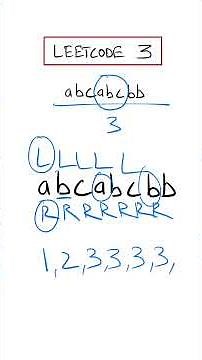 LEETCODE 3
abcabcbb
3
L L L L L
abcabcbb
R R R R R R R
1,2,3,3,3,3,